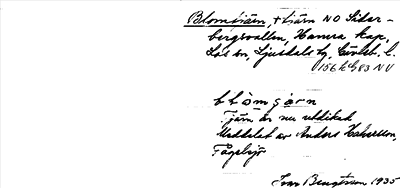 Blomtjärn, tjärn NO Sidar-
bergsvallen, Hamra kap,
Los sn, Ljusdals tg, Gävleb. l.
156 83 NV
blömgärn
Tjärn är nu utdikad
Meddelat av Anders
Fågelsjö
Ivar Bengtsson 1935